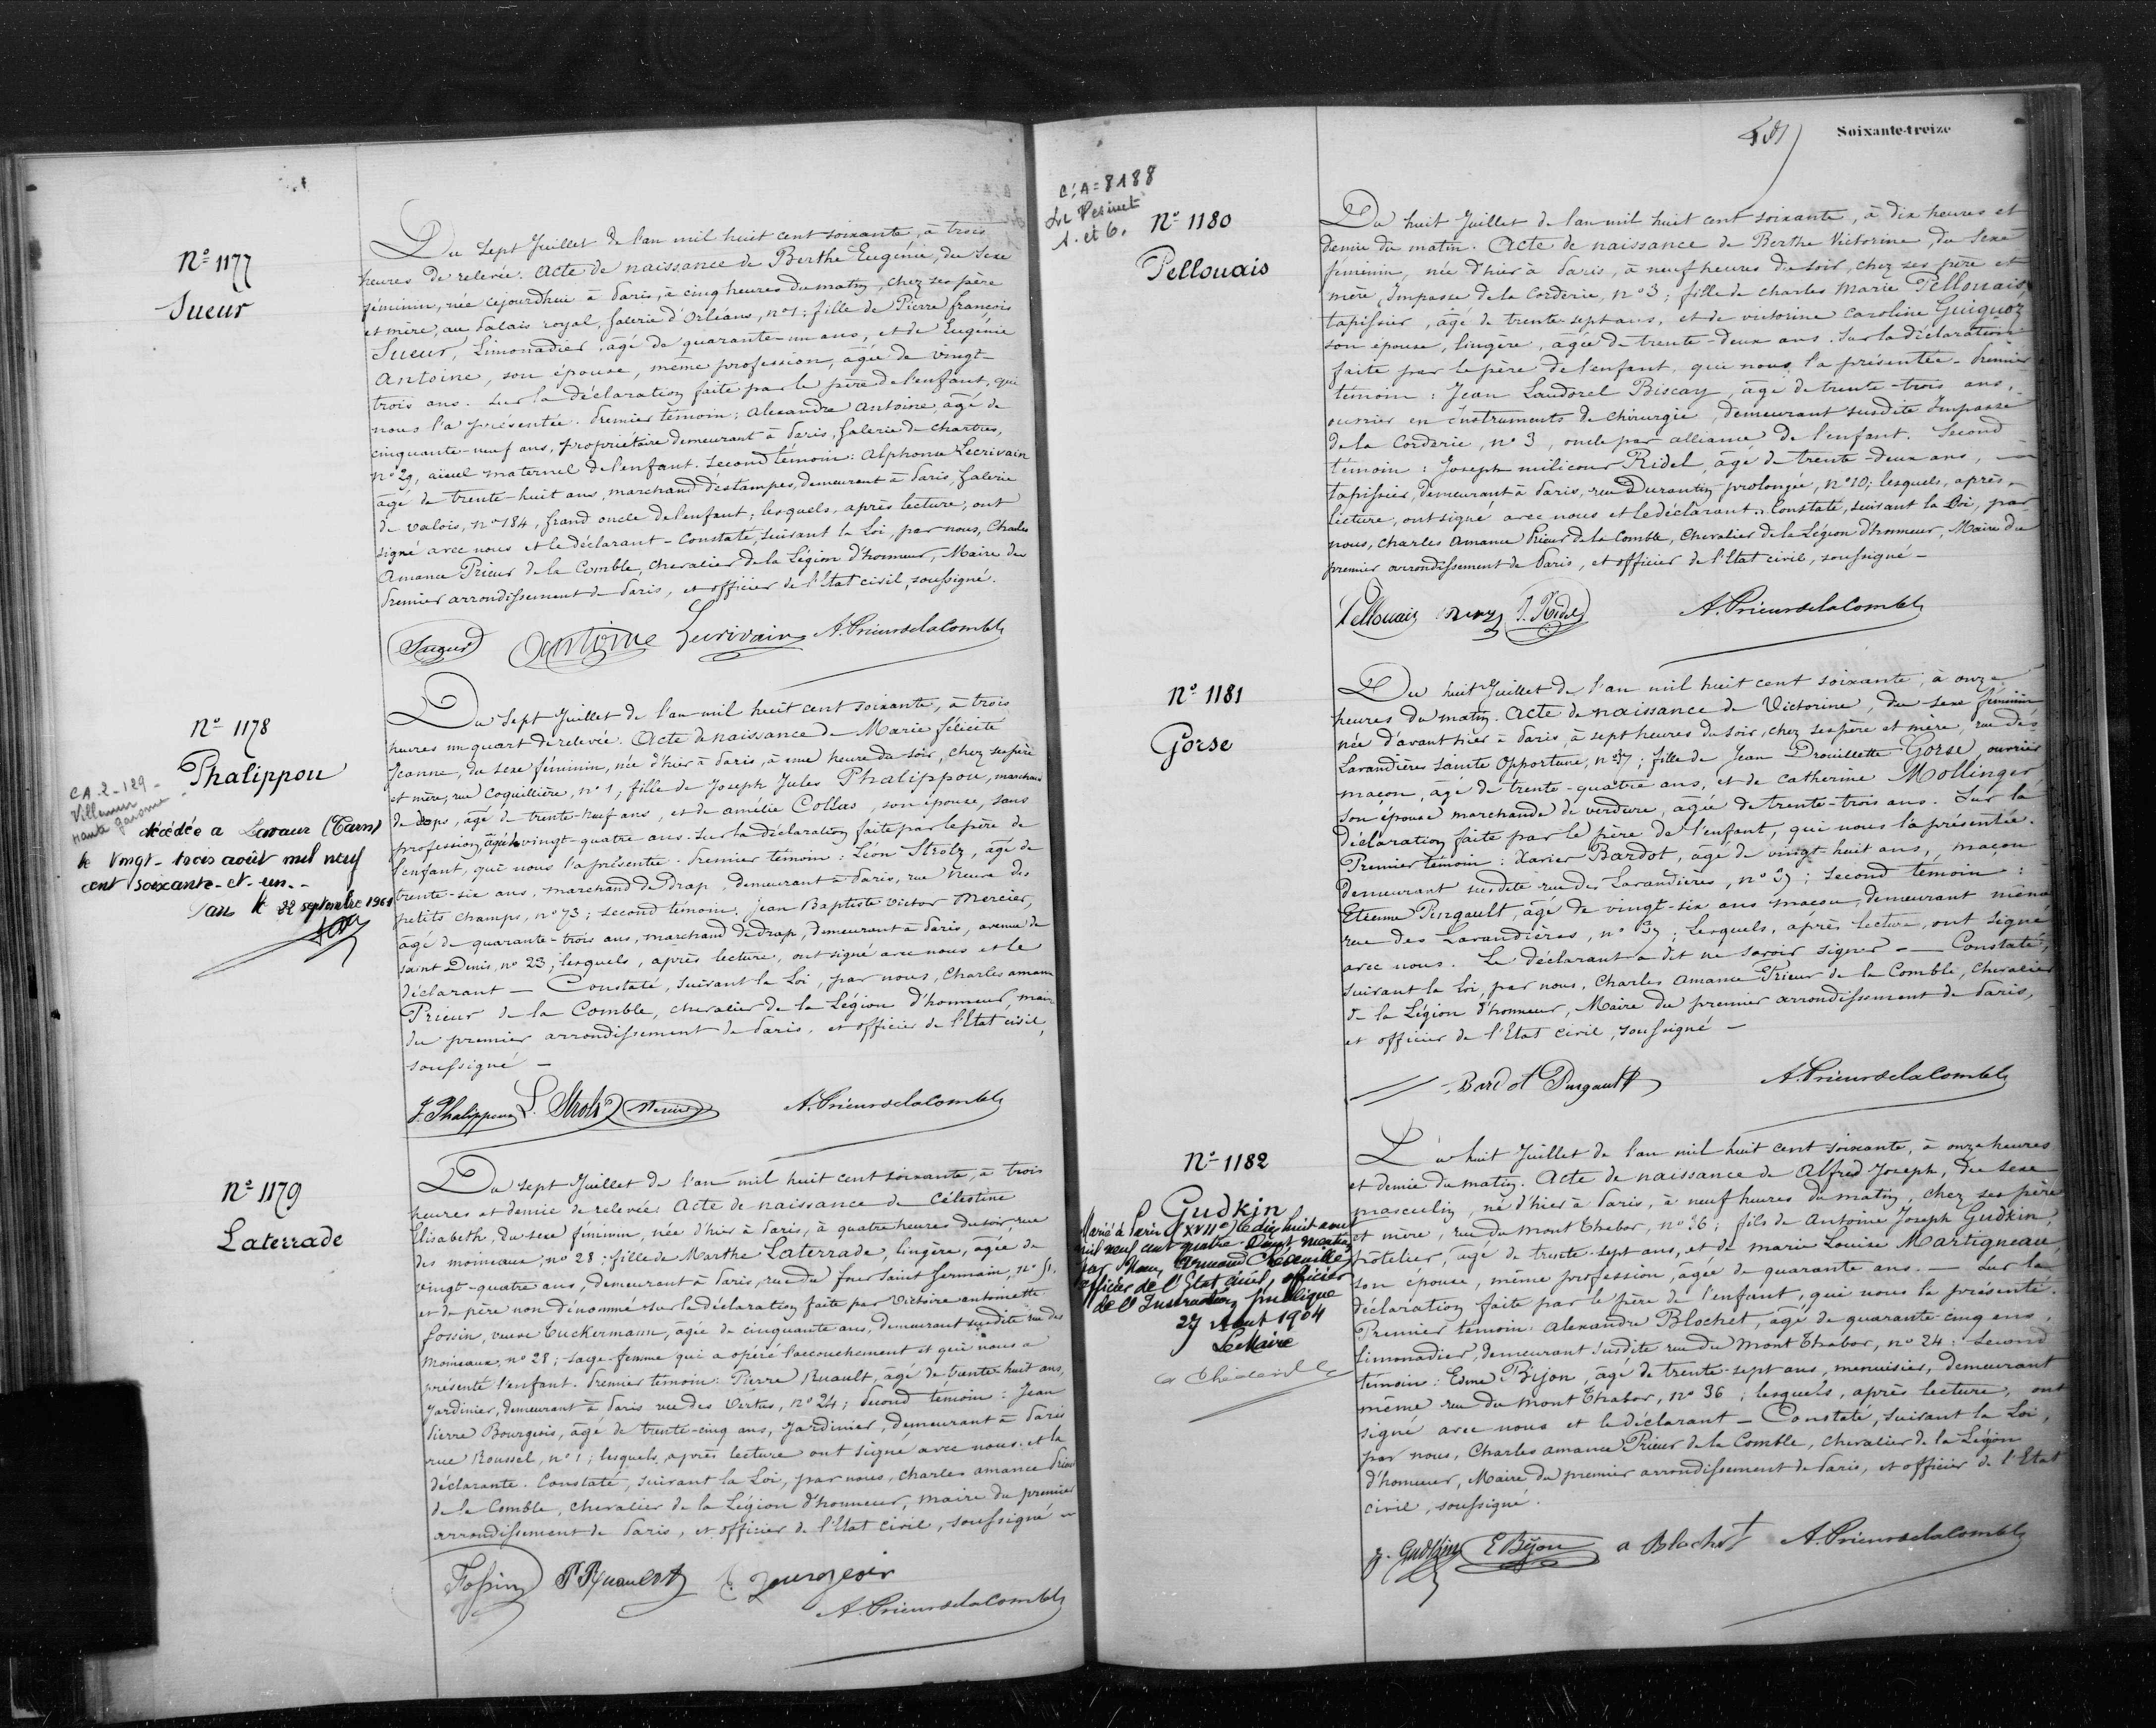 Nº 1177
Sueur
Du sept Juillet de l'an mil huit cent soixante, à trois
heures de relevée. Acte de naissance de Berthe Eugénie, du sexe
féminin, née cejourdhui à Paris, à cinq heures du matin, chez ses père
et mère, au Palais royal, Galerie d'Orléans, nº 1; fille de Pierre françois
Sueur, Limonadier, âgé de quarante-un ans, et de Eugénie
Antoine, son épouse, même profession, âgée de vingt-
trois ans. Sur la déclaration faite par le père de l'enfant, qui
nous l'a présentée. Premier témoin: Alexandre Antoine, âgé de
cinquante-neuf ans, propriétaire demeurant à Paris, Galerie de Chartres,
nº 29, aïeul maternel de l'enfant. Second témoin: Alphonse Lecrivain
âgé de trente-huit ans, marchand d'estampes, demeurant à Paris, Galerie
de Valois, nº 184, Grand oncle de l'enfant; lesquels, après lecture, ont
signé avec nous et le déclarant - Constaté, suivant la Loi, par nous, Charles
Amance Prieur de la Comble, chevalier de la Légion d'honneur, Maire du
Premier arrondissement de Paris, et officier de l'Etat civil, soussigné.
Sueur Antoine Lecrivain A. Prieur de la Comble
Nº 1178
Phalippou
CA-2-129-
Villemur
Haute Garonne
décédée a Lavaur (Tarn)
le vingt-trois août mil neuf
cent soixante-et-un.-
le 22 septembre 1961
Du sept Juillet de l'an mil huit cent soixante, à trois
heures un quart de relevée. Acte de naissance de Marie félicité
Jeanne, du sexe féminin, née d'hier à Paris, à une heure du soir, chez ses père
et mère, rue Coquillière, nº 1; fille de Joseph Jules Phalippou, marchand
de draps, âgé de trente-neuf ans, et de Amélie Collas, son épouse, sans
profession, âgée de vingt-quatre ans. Sur la déclaration faite par le père de
l'enfant, qui nous l'a présentée. Premier témoin: Léon Strolz, âgé de
trente-six ans, marchand de Drap, demeurant à Paris, rue Neuve des
petits champs, nº 73; second témoin: Jean Baptiste Victor Mercier,
âgé de quarante-trois ans, marchand de drap, demeurant à Paris, avenue de
saint Denis, nº 23; lesquels, après lecture, ont signé avec nous et le
déclarant - Constaté, suivant la Loi, par nous, Charles amance
Prieur de la Comble, chevalier de la Légion d'honneur, maire
du premier arrondissement de Paris, et officier de l'Etat civil,
soussigné -
J. Phalippou L. Strolz Mercier A. Prieur de la Comble
Nº 1179
Laterrade
Du sept Juillet de l'an mil huit cent soixante, à trois
heures et demie de relevée. Acte de naissance de Célestine
Elisabeth, du sexe féminin, née d'hier à Paris, à quatre heures du soir, rue
des moineaux, nº 28; fille de Marthe Laterrade, lingère, âgée de
vingt-quatre ans, demeurant à Paris, rue du four saint Germain, nº 51,
et de père non dénommé. Sur la déclaration faite par Victoire antoinette
fossin, veuve Tuckermann, âgée de cinquante ans, demeurant susdite rue des
moineaux, nº 28; sage-femme qui a opéré l'accouchement et qui nous a
présenté l'enfant. Premier témoin: Pierre Ruault, âgé de trente huit ans,
Jardinier, demeurant à Paris rue des Vertus, nº 24; second témoin: Jean
Pierre Bourgeois, âgé de trente-cinq ans, Jardinier, demeurant à Paris
rue Roussel, nº 1; lesquels, après lecture ont signé avec nous et la
déclarante. Constaté, suivant la Loi, par nous, Charles amance Prieur
de la Comble, chevalier de la Légion d'honneur, maire du premier
arrondissement de Paris, et officier de l'Etat civil, soussigné -
Fossin P Ruault Bourgeois
A. Prieur de la Comble
Soixante-treize
C.A=8188
Le Vesinet
S. et O.
Nº 1180
Pellouais
Du huit Juillet de l'an mil huit cent soixante, à dix heures et
demie du matin. Acte de naissance de Berthe Victorine, du sexe
féminin, née d'hier à Paris, à neuf heures du soir, chez ses père et
mère, Impasse de la Corderie, nº 3; fille de Charles Marie Pellouais
tapissier, âgé de trente-sept ans, et de Victorine Caroline Guiguoz
son épouse, lingère, agée de trente-deux ans. Sur la déclaration
faite par le père de l'enfant, qui nous l'a présentée - Premier
témoin: Jean Biscay, âgé de trente-trois ans,
ouvrier en instruments de chirurgie, demeurant susdite Impasse
de la Corderie, nº 3, oncle par alliance de l'enfant. Second
témoin: Joseph Ridel, âgé de trente-deux ans,
tapissier, demeurant à Paris, rue Durantin prolongée, nº 10; lesquels, après
lecture, ont signé avec nous et le déclarant. Constaté, suivant la Loi, par
nous, Charles Amance Prieur de la Comble, Chevalier de la Légion d'honneur, Maire du
premier arrondissement de Paris, et officier de l'Etat civil, soussigné -
Pellouais J. Ridel A. Prieur de la Comble
Nº 1181
Gorse
Du huit Juillet de l'an mil huit cent soixante, à onze
heures du matin. Acte de naissance de Victorine, du sexe féminin
née d'avant hier à Paris, à sept heures du soir, chez ses père et mère, rue des
Lavandières sainte Opportune, nº 37; fille de Jean Drouillette Gorse, ouvrier
maçon, âgé de trente-quatre ans, et de Catherine Mollinger,
son épouse marchande de verdure, âgée de trente-trois ans. Sur la
déclaration faite par le père de l'enfant, qui nous l'a présentée.
Premier témoin: Xavier Bardot, âgé de vingt-huit ans, maçon
demeurant susdite rue des Lavandières, nº 37; second témoin:
Etienne Pingault, âgé de vingt-six ans maçon, demeurant même
rue des Lavandières, nº 37; lesquels, après lecture, ont signé
avec nous. Le déclarant a dit ne savoir signer - Constaté,
suivant la loi, par nous, Charles Amance Prieur de la Comble, chevalier
de la Légion d'honneur, Maire du premier arrondissement de Paris,
et officier de l'Etat civil, soussigné -
Bardot Pingault A. Prieur de la Comble
Nº 1182
Gudkin
Marié à Paris (XVIIe) le dix huit aout
mil neuf cent quatre
par Nous,
officier de l'Etat civil, officier
de l'Instruction publique
27 Aout 1904
Le Maire
Du huit Juillet de l'an mil huit cent soixante, à onze heures
et demie du matin. Acte de naissance de Alfred Joseph, du sexe
masculin, né d'hier à Paris, à neuf heures du matin, chez ses père
et mère, rue du mont thabor, nº 36; fils de Antoine Joseph Gudkin,
hôtelier, âgé de trente-sept ans, et de marie Louise Martigneau,
son épouse, même profession, âgée de quarante ans. - Sur la
déclaration faite par le père de l'enfant, qui nous l'a présenté.
Premier témoin: Alexandre Blochet, âgé de quarante-cinq ans,
limonadier, demeurant susdite rue du Mont Thabor, nº 24; second
témoin: Edme Bijon, âgé de trente-sept ans, menuisier, demeurant
même rue du mont Thabor, nº 36; lesquels, après lecture, ont
signé avec nous et le déclarant - Constaté, suivant la Loi,
par nous, Charles amance Prieur de la Comble, chevalier de la Légion
d'honneur, Maire du premier arrondissement de Paris, et officier de l'Etat
civil, soussigné.
J. Gudkin E Bijon a Blochet A. Prieur de la Comble